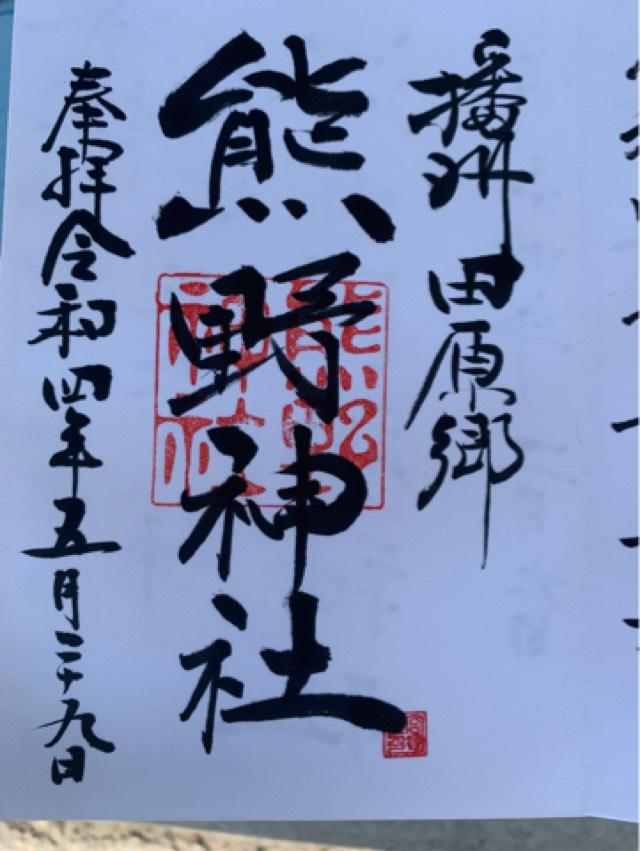 播州田原郷
熊野神社
熊野
神社
奉拝令和四年五月二十九日